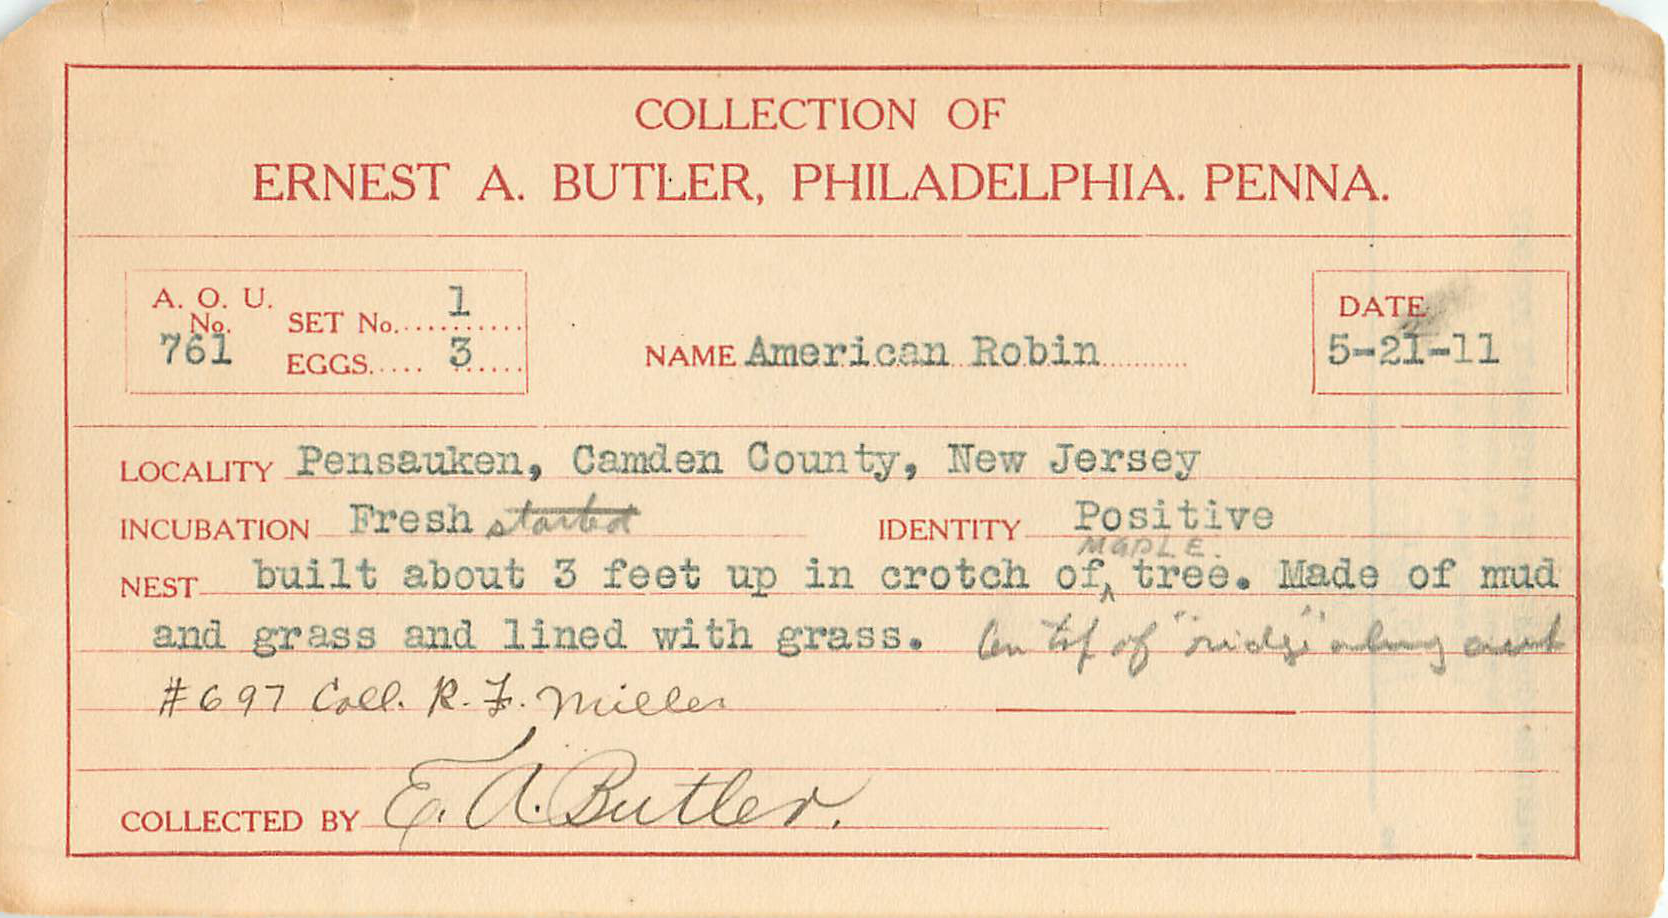 COLLECTION OF
ERNEST A. BUTLER, PHILADELPHIA. PENNA.
A. O. U. No. 761
SET No. 1
EGGS 3
NAME American Robin
DATE 5-21-11
LOCALITY Pensauken, Camden County, New Jersey
INCUBATION Fresh started IDENTITY Positive
MAPLE.
NEST built about 3 feet up in crotch of ‸ tree. Made of mud
and grass and lined with grass. On top of "ridge" along
#697 Coll. R. F. Miller
COLLECTED BY E. A. Butler.